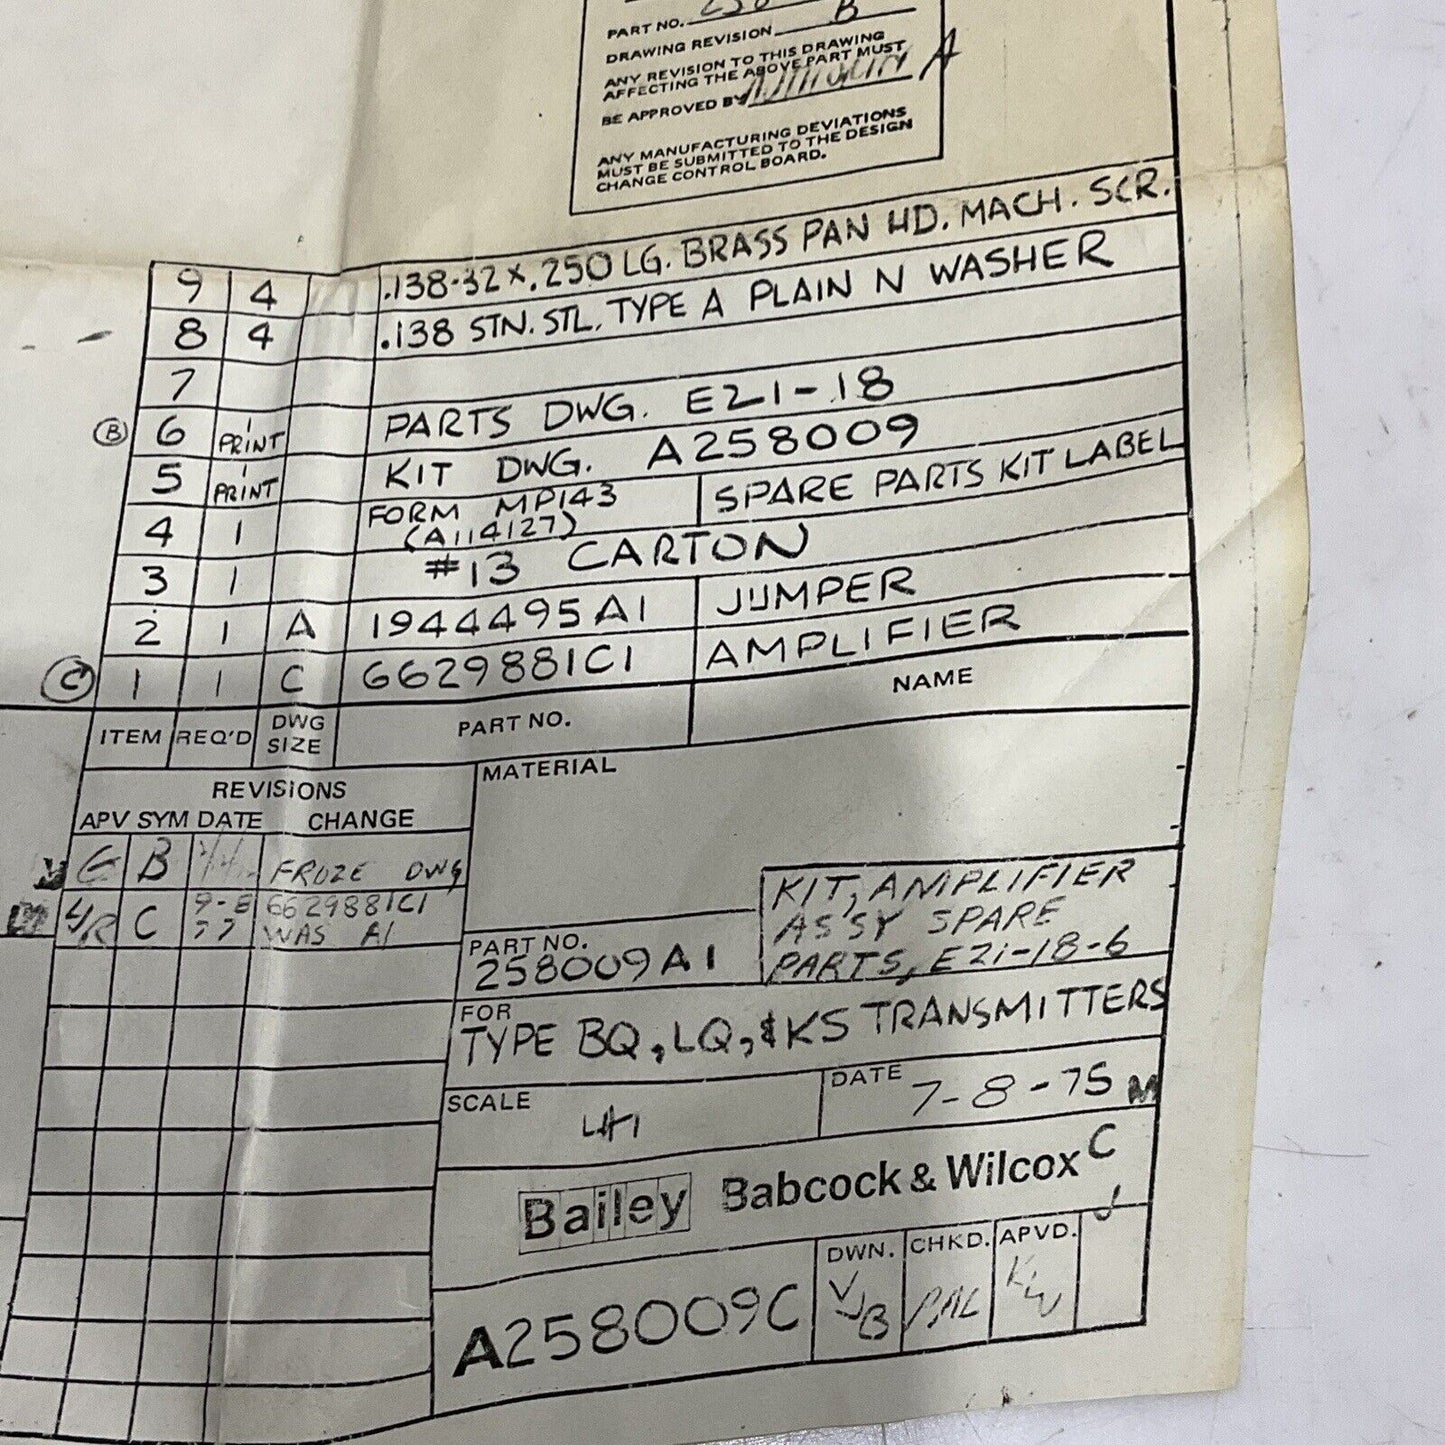 PART NO.
DRAWING REVISION B
ANY REVISION TO THIS DRAWING
AFFECTING THE ABOVE PART MUST
BE APPROVED BY A
ANY MANUFACTURING DEVIATIONS
MUST BE SUBMITTED TO THE DESIGN
CHANGE CONTROL BOARD.
9 4 .138-32 x .250 LG. BRASS PAN HD. MACH. SCR.
8 4 .138 STN. STL. TYPE A PLAIN N WASHER
7
B 6 1 PRINT PARTS DWG. E21-18
5 1 PRINT KIT DWG. A258009
4 1 FORM MP143 (A114127) SPARE PARTS KIT LABEL
3 1 #13 CARTON
2 1 A 1944495A1 JUMPER
C 1 1 C 6629881C1 AMPLIFIER
ITEM REQ'D DWG SIZE PART NO. NAME
REVISIONS
APV SYM DATE CHANGE
B FROZE DWG
C 9-8 77 6629881C1 WAS A1
MATERIAL
KIT, AMPLIFIER
ASSY SPARE
PARTS, E21-18-6
PART NO.
258009A1
FOR
TYPE BQ, LQ, & KS TRANSMITTERS
SCALE
DATE 7-8-75
Bailey Babcock & Wilcox C
DWN. CHKD. APVD.
A258009C VJB PAL